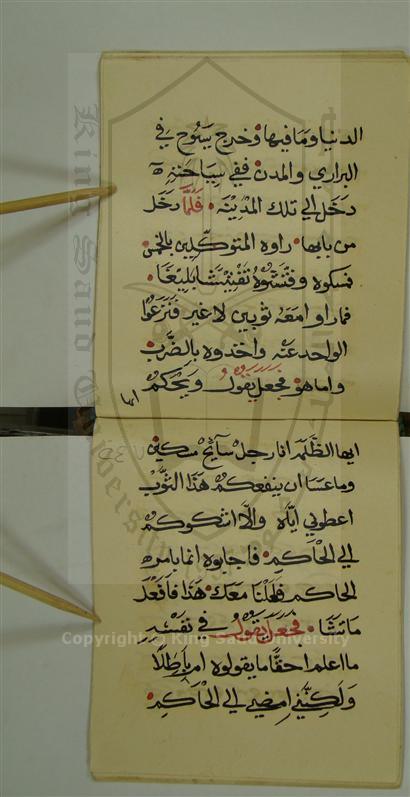 الدنيا وما فيها وخرج يسوح في
البراري والمدن ففي سياحته
دخل الي تلك المدينة فلما دخل
من بابها راوه المتوكلين بالخمس
فسكوه وفتشوه تفتيشا بليغا
فما راوا معه ثوبين لا غير فنزعوا
الواحد عنه واخدوه بالضرب
واما هو فجعل يقول ويحكم
ايها
ايها الظلمه انا رجل سايح مسكين
وما عسا ان ينفعكم هذا الثوب
اعطوني اياه والا اشكوكم
الي الحاكم فاجابوه انما بامره
الحاكم فعلنا معك هذا فافعل
ما تشا فجعل يقول في نفسه
ما اعلم احقا ما يقولوه ام باطلا
ولكنني امضي الي الحاكم
King Saud University
Copyright © King Saud University